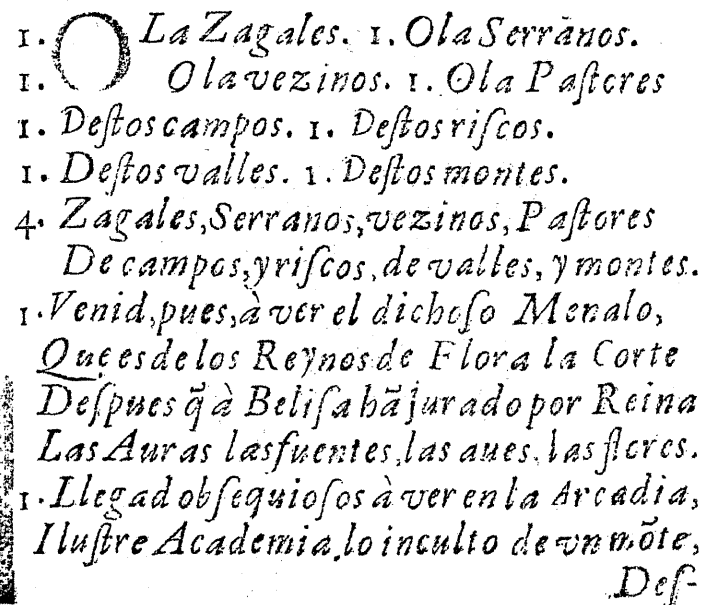 1. OLa Zagales. 1. Ola Serranos.
1. Ola vezinos. 1. Ola Paſtores
1. Deſtos campos. 1. Deſtos riſcos.
1. Deſtos valles. 1. Deſtos montes.
4. Zagales, Serranos, vezinos, Paſtores
De campos, y riſcos, de valles, y montes.
1. Venid, pues, à ver el dichoſo Menalo,
Que es de los Reynos de Flora la Corte
Deſpues q̃ à Beliſa hã jurado por Reina
Las Auras las fuentes, las aues, las flores.
1. Llegad obſequioſos à ver en la Arcadia,
Iluſtre Academia, lo inculto de vn mõte,
Deſ-